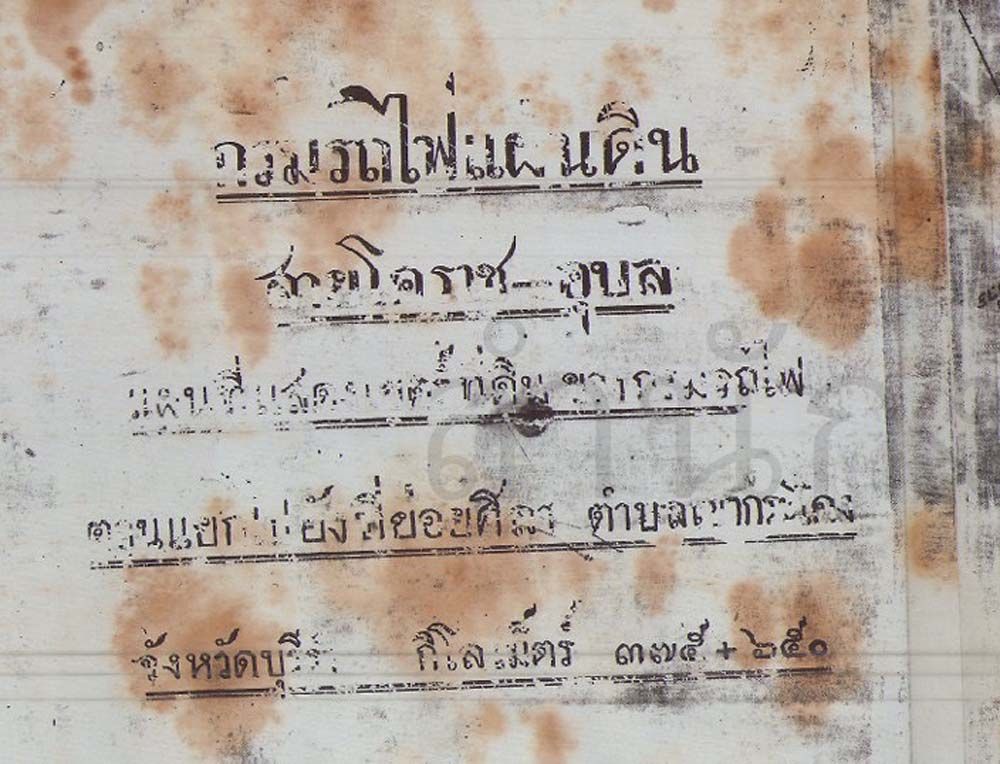 กรมรถไฟแผ่นดิน
สายโคราช-อุบล
แผนที่แสดงเขตร์ที่ดินของกรมรถไฟ
ตามแยกไปยังที่ย่อยศิลา ตำบลเขากระโดง
จังหวัดบุรี กิโลเม็ตร์ ๓๗๕ + ๖๕๐